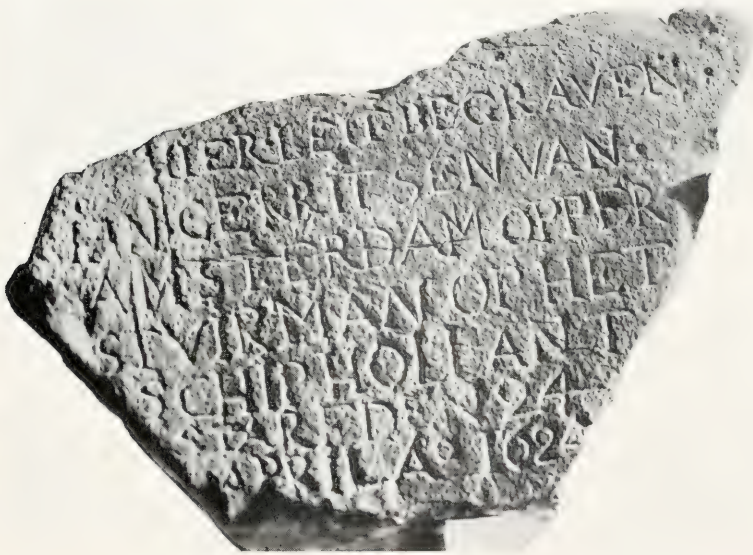 HIER LEIT BEGRAVEN
IAN GERRIT SEN VAN
AMSTERDAM OPPER
STVIRMAN OP HET
SCHIP HOLLANT
STERF DEN
APRIL A° 1624